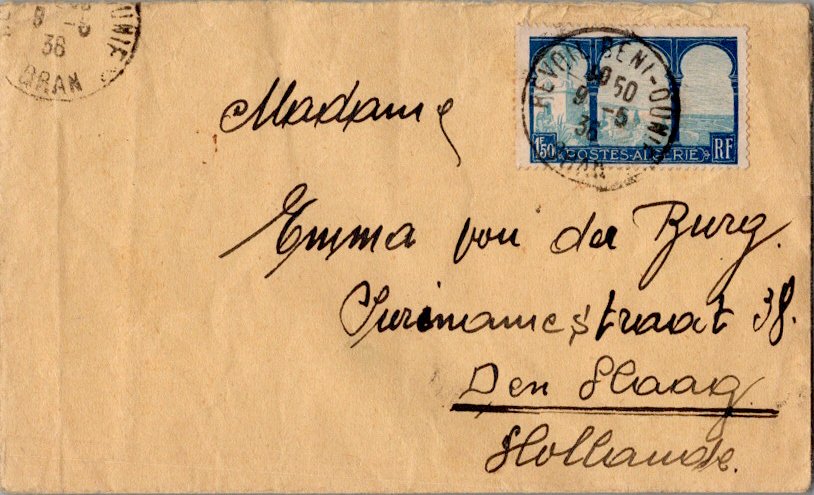 9 -5
36
ORAN
REVOIL BENI-OUNIF
9 -5
36
ORAN
1F50 POSTES-ALGERIE RF
Madame
Emma von der Burg.
Surinamestraat 38.
Den Haag
Hollande.